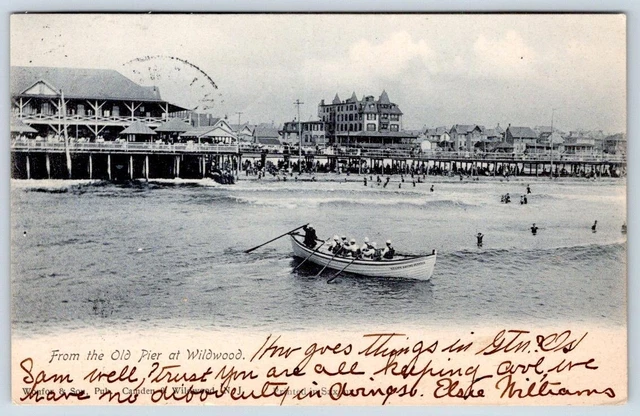 From the Old Pier at Wildwood. How goes things in Gtn.? Is
Sam well, trust you are all keeping cool, we
have no difficulty in doing so. Elsie Williams
& Son, Pub., Camden & Wildwood, N.J. Printed in Saxony